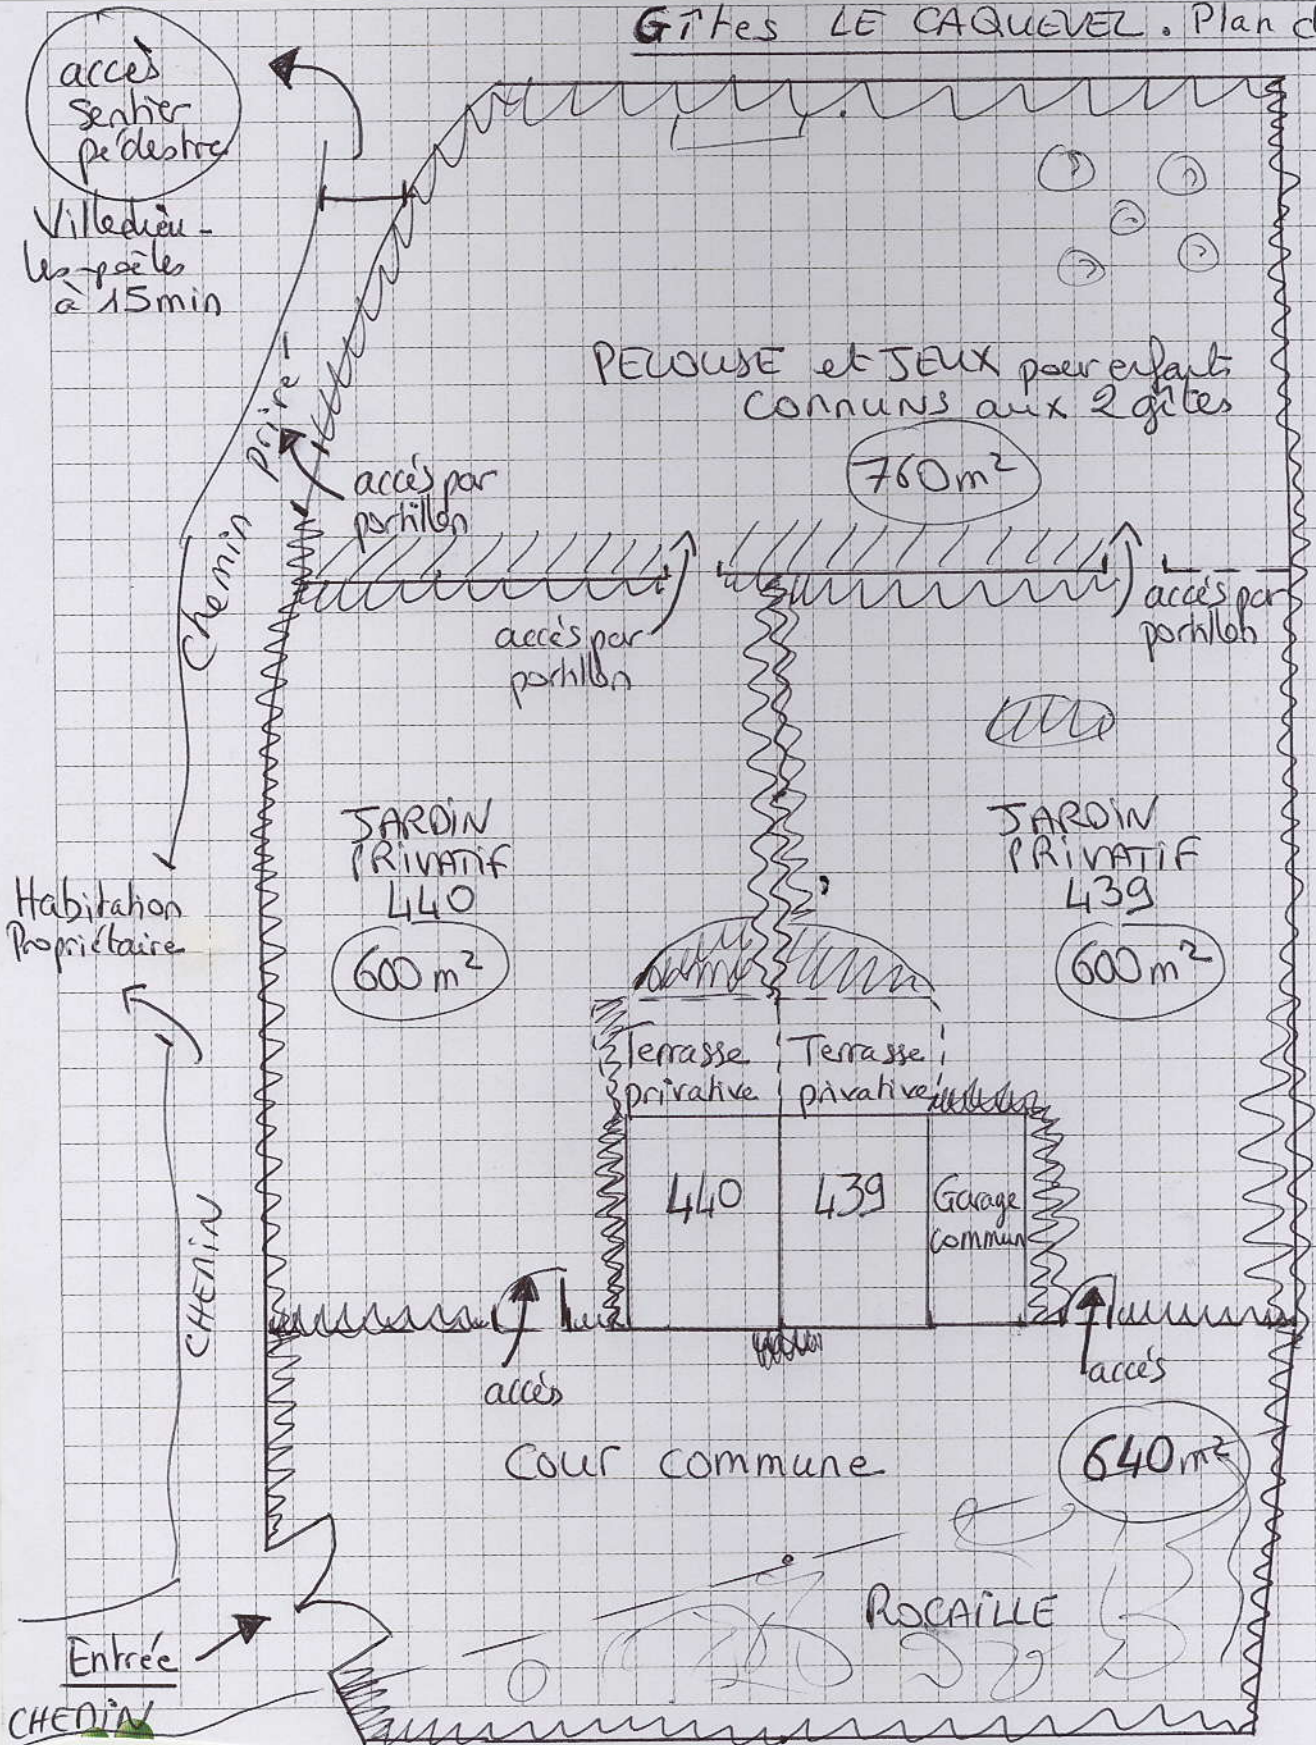 Gîtes LE CAQUEVEL. Plan d
accès
sentier
pédestre
Villedieu-
les-poêles
à 15min
PELOUSE et JEUX pour enfants
COMMUNS aux 2 gîtes
760m²
Chemin privé
accès par
portillon
accès par
portillon
accès par
portillon
JARDIN
PRIVATIF
440
600m²
JARDIN
PRIVATIF
439
600m²
Habitation
Propriétaire
Terrasse
privative
Terrasse
privative
440
439
Garage
commun
CHEMIN
accès
accès
Cour commune
640m²
ROCAILLE
Entrée
CHEMIN